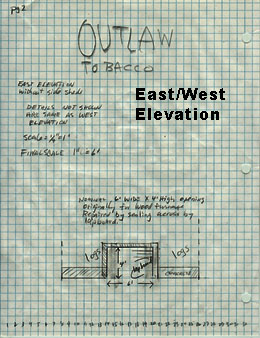 pg 2
OUTLAW
TOBACCO
East/West
Elevation
EAST ELEVATION
without side shed
DETAILS NOT SHOWN
ARE SAME AS WEST
ELEVATION
SCALE = 1/4" = 1'
FINAL SCALE 1" = 6'
6' WIDE X 4' High opening
originally for wood
Repaired by sealing across by
logs
logs
4'
6'
CONCRETE